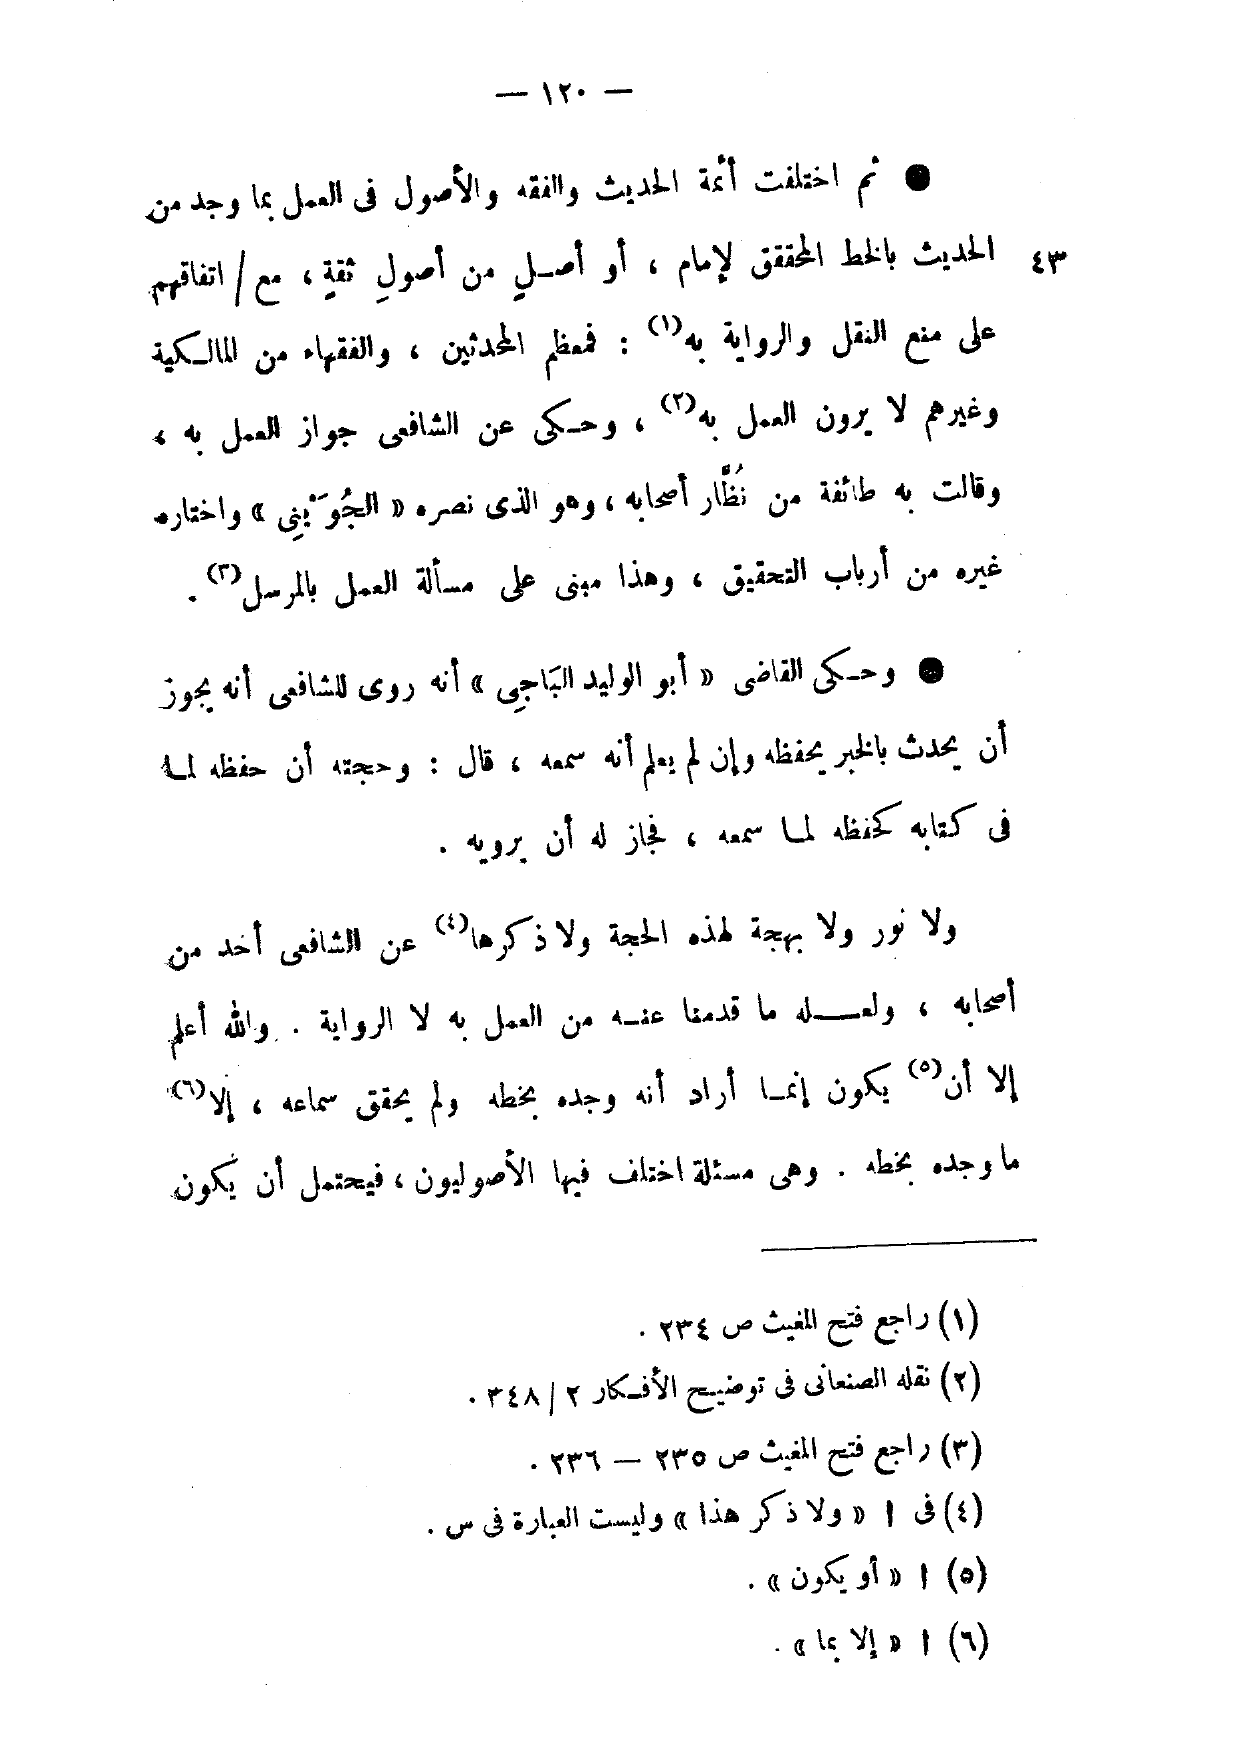 — ١٢٠ —
● ثم اختلفت أئمة الحديث والفقه والأصول فى العمل بما وجد من
٤٣ الحديث بالخط المحقق لإمام ، أو أصـلٍ من أصولِ ثقةٍ ، مع / اتفاقهم
على منع النقل والرواية به(١) : فمعظم المحدثين ، والفقهاء من المالـكية
وغيرهم لا يرون العمل به(٢) ، وحـكى عن الشافعى جواز العمل به ،
وقالت به طائفة من نُظَّار أصحابه ، وهو الذى نصره « الجُوَيْنِى » واختاره
غيره من أرباب التحقيق ، وهذا مبنى على مسألة العمل بالمرسل(٣) .
● وحـكى القاضى « أبو الوليد البَاجِى » أنه روى للشافعى أنه يجوز
أن يحدث بالخبر يحفظه وإن لم يعلم أنه سمعه ، قال : وحجته أن حفظه لمـا
فى كتابه كحفظه لمـا سمعه ، فجاز له أن يرويه .
ولا نور ولا بهجة لهذه الحجة ولا ذكرها(٤) عن الشافعى أحد من
أصحابه ، ولعـــله ما قدمنا عنـه من العمل به لا الرواية . والله أعلم
إلا أن(٥) يكون إنمـا أراد أنه وجده بخطه ولم يحقق سماعه ، إلا(٦)
ما وجده بخطه . وهى مسئلة اختلف فيها الأصوليون ، فيحتمل أن يكون
(١) راجع فتح المغيث ص ٢٣٤ .
(٢) نقله الصنعانى فى توضيـح الأفـكار ٢ / ٣٤٨ .
(٣) راجع فتح المغيث ص ٢٣٥ — ٢٣٦ .
(٤) فى ا « ولا ذكر هذا » وليست العبارة فى س .
(٥) ا « أو يكون » .
(٦) ا « إلا بما » .